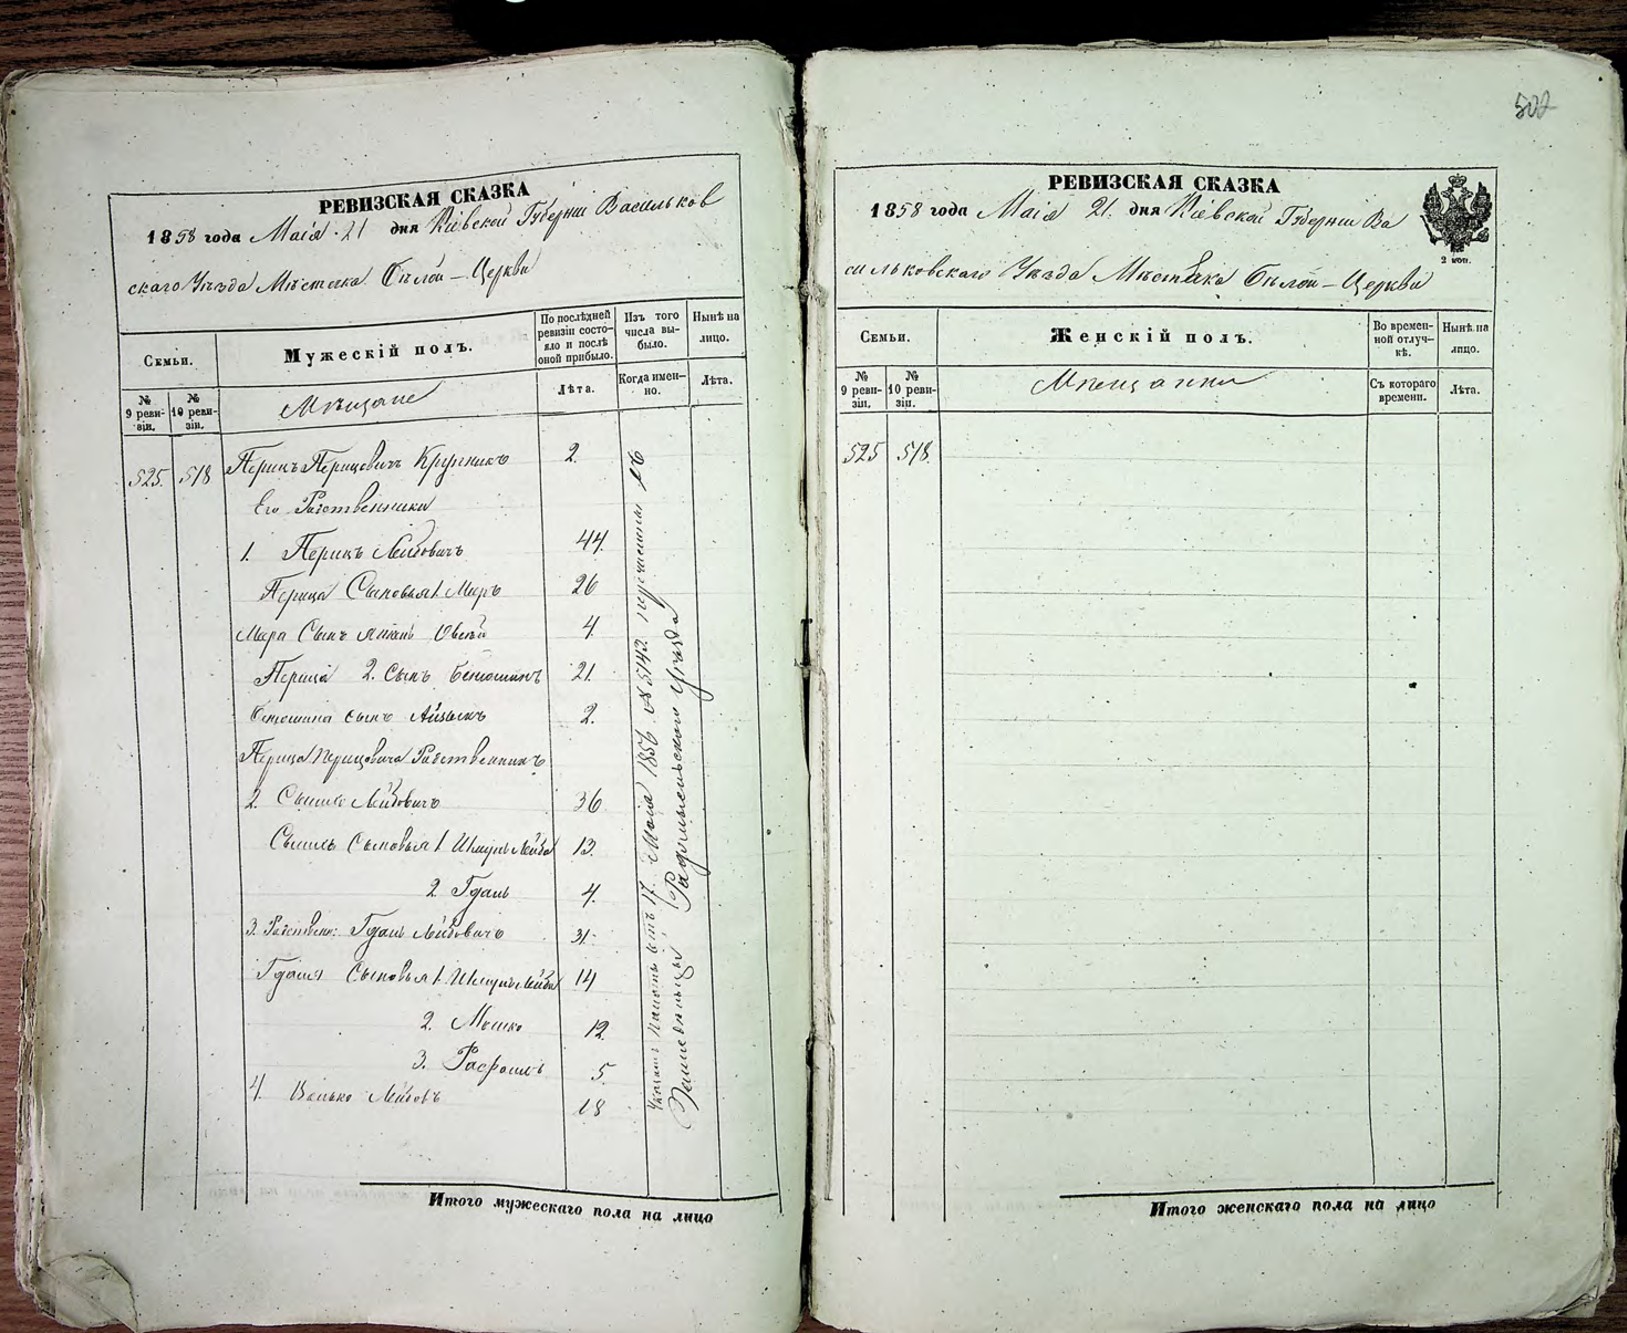 502
РЕВИЗСКАЯ СКАЗКА
1858 года Маія 21 дня Кіевской Губерніи Васильков
скаго Уѣзда Мѣстечка Бѣлой-Церкви
Семьи.
Мужескій полъ.
По послѣдней ревизіи состояло и послѣ оной прибыло.
Изъ того числа выбыло.
Нынѣ на лицо.
№ 9 ревизіи.
№ 10 ревизіи.
Мѣщане
Лѣта.
Когда именно.
Лѣта.
525. 518 Перецъ Перецовичъ Крупникъ 2.
Его Родственники
1. Перецъ Лейбовичъ 44
Переца Сыновья 1. Меръ 26
Мера Сынъ Овсѣй 4
Переца 2. Сынъ Беньоминъ 21.
Беньомина сынъ Айзыкъ 2.
Переца Перецовича Родственникъ
2. Лейбовичъ 36
Сыновья 1 Шмуль Лейба 13.
2 Гдаль 4.
3. Родствен: Гдаль Лейбовичъ 31.
Гдаля Сыновья 1. Шмуль Лейба 14
2. Мошко 12.
3. Рафаилъ 5.
4. Волько Лейбовъ 18
отъ 17. Маіа 1856 № 5142. перечислены въ
Радомысльского Уѣзда
Итого мужескаго пола на лицо
РЕВИЗСКАЯ СКАЗКА
1858 года Маія 21. дня Кіевской Губерніи Ва
сильковскаго Уѣзда Мѣстечка Бѣлой-Церкви
2 коп.
Семьи.
Женскій полъ.
Во временной отлучкѣ.
Нынѣ на лицо.
№ 9 ревизіи.
№ 10 ревизіи.
Мѣщанки
Съ котораго времени.
Лѣта.
525 518.
Итого женскаго пола на лицо